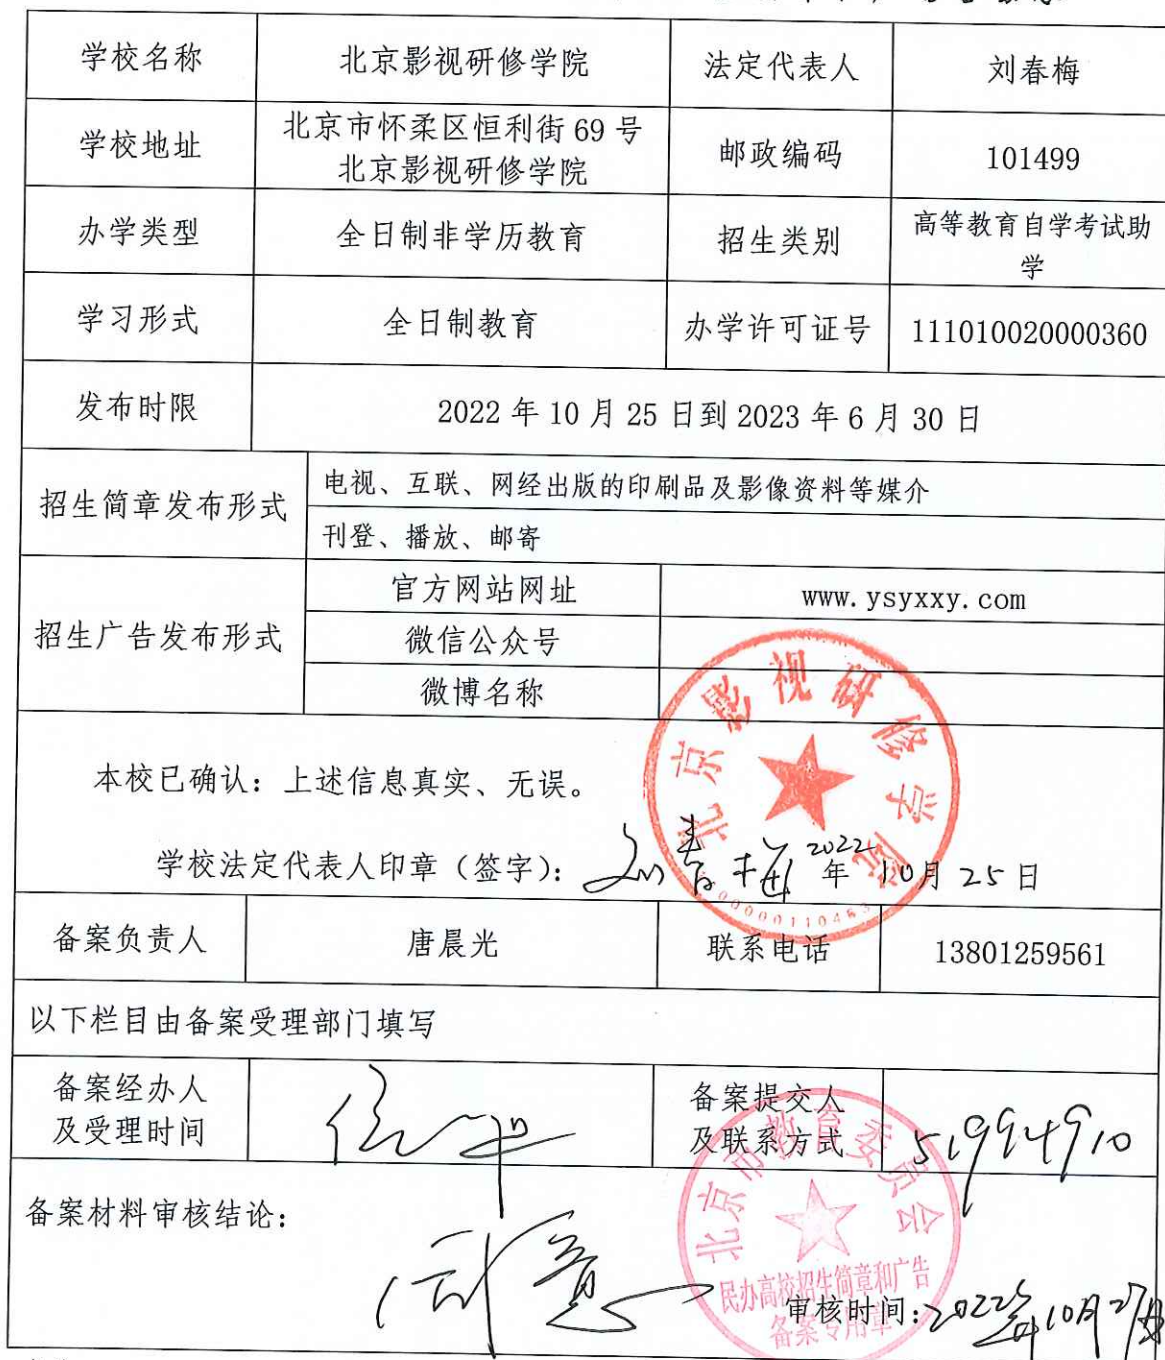 学校名称 北京影视研修学院 法定代表人 刘春梅
学校地址 北京市怀柔区恒利街 69 号 北京影视研修学院 邮政编码 101499
办学类型 全日制非学历教育 招生类别 高等教育自学考试助学
学习形式 全日制教育 办学许可证号 111010020000360
发布时限 2022 年 10 月 25 日到 2023 年 6 月 30 日
招生简章发布形式 电视、互联、网经出版的印刷品及影像资料等媒介
刊登、播放、邮寄
招生广告发布形式 官方网站网址 www.ysyxxy.com
微信公众号
微博名称
北京影视研修学院
本校已确认：上述信息真实、无误。
学校法定代表人印章（签字）：刘春梅 2022年 10月 25日
备案负责人 唐晨光 联系电话 13801259561
以下栏目由备案受理部门填写
备案经办人及受理时间 备案提交人及联系方式 51994910
北京市教育委员会
备案材料审核结论：
同意
民办高校招生简章和广告
备案专用章
审核时间：2022年10月27日